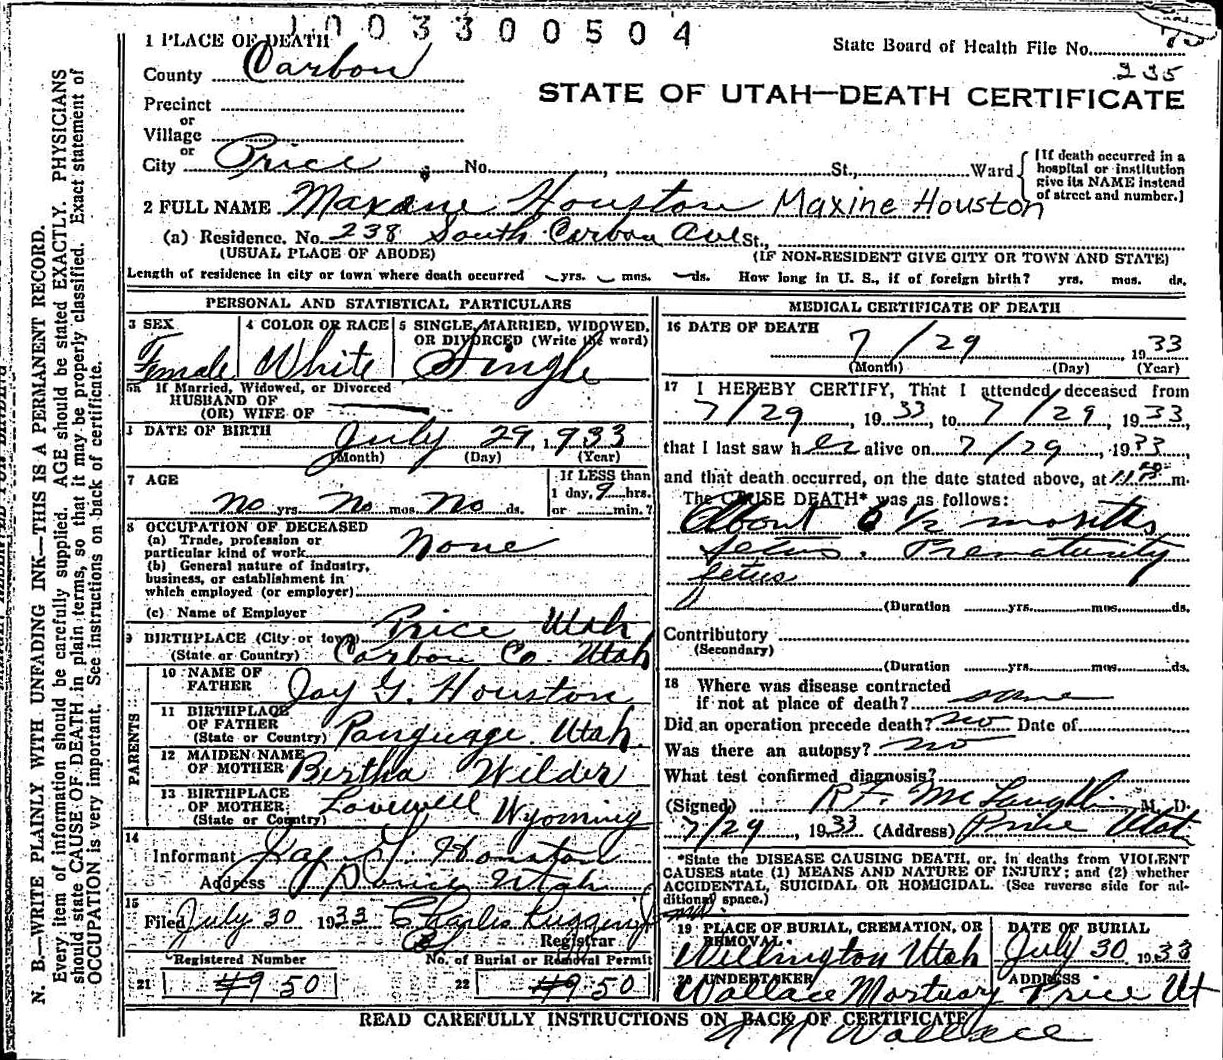 1003300504
1 PLACE OF DEATH
State Board of Health File No. 75
County Carbon
235
STATE OF UTAH—DEATH CERTIFICATE
Precinct
or
Village
or
City Price No. , St., Ward
[If death occurred in a hospital or institution give its NAME instead of street and number.]
2 FULL NAME Maxine Houston Maxine Houston
(a) Residence. No. 238 South Carbon Ave St.,
(USUAL PLACE OF ABODE) (IF NON-RESIDENT GIVE CITY OR TOWN AND STATE)
Length of residence in city or town where death occurred yrs. mos. ds. How long in U. S., if of foreign birth? yrs. mos. ds.
PERSONAL AND STATISTICAL PARTICULARS
3 SEX 4 COLOR OR RACE 5 SINGLE, MARRIED, WIDOWED, OR DIVORCED (Write the word)
Female White Single
5a If Married, Widowed, or Divorced
HUSBAND OF
(OR) WIFE OF
DATE OF BIRTH July 29, 1933
(Month) (Day) (Year)
7 AGE If LESS than
No yrs. No mos. No ds. 1 day, 9 hrs.
or min.?
8 OCCUPATION OF DECEASED
(a) Trade, profession or
particular kind of work None
(b) General nature of industry,
business, or establishment in
which employed (or employer)
(c) Name of Employer
9 BIRTHPLACE (City or town) Price Utah
(State or Country) Carbon Co. Utah
PARENTS
10 NAME OF FATHER Jay G. Houston
11 BIRTHPLACE OF FATHER
(State or Country) Panguage Utah
12 MAIDEN NAME OF MOTHER Bertha Wilder
13 BIRTHPLACE OF MOTHER
(State or Country) Lovewell Wyoming
14
Informant Jay G. Houston
Address Price Utah
15
Filed July 30 1933 Charles Ruggeri
Registrar
Registered Number No. of Burial or Removal Permit
21 #9 50 22 #9 50
MEDICAL CERTIFICATE OF DEATH
16 DATE OF DEATH
7 / 29, 1933
(Month) (Day) (Year)
17 I HEREBY CERTIFY, That I attended deceased from
7/29, 1933, to 7/29, 1933,
that I last saw her alive on 7/29, 1933,
and that death occurred, on the date stated above, at m.
The CAUSE DEATH* was as follows:
About 6 1/2 months
fetus. Prematurity
fetus
(Duration yrs. mos. ds.
Contributory
(Secondary)
(Duration yrs. mos. ds.
18 Where was disease contracted
if not at place of death? same
Did an operation precede death? no Date of
Was there an autopsy? no
What test confirmed diagnosis?
(Signed) R. F. McLaughlin, M. D.
7/29, 1933 (Address) Price Utah
*State the DISEASE CAUSING DEATH, or, in deaths from VIOLENT
CAUSES state (1) MEANS AND NATURE OF INJURY; and (2) whether
ACCIDENTAL, SUICIDAL OR HOMICIDAL. (See reverse side for ad-
ditional space.)
19 PLACE OF BURIAL, CREMATION, OR REMOVAL. DATE OF BURIAL
Wellington Utah July 30 1933
20 UNDERTAKER ADDRESS
Wallace Mortuary Price Ut
READ CAREFULLY INSTRUCTIONS ON BACK OF CERTIFICATE
Wallace
N. B.—WRITE PLAINLY WITH UNFADING INK—THIS IS A PERMANENT RECORD.
Every item of information should be carefully supplied. AGE should be stated EXACTLY. PHYSICIANS
should state CAUSE OF DEATH in plain terms, so that it may be properly classified. Exact statement of
OCCUPATION is very important. See instructions on back of certificate.